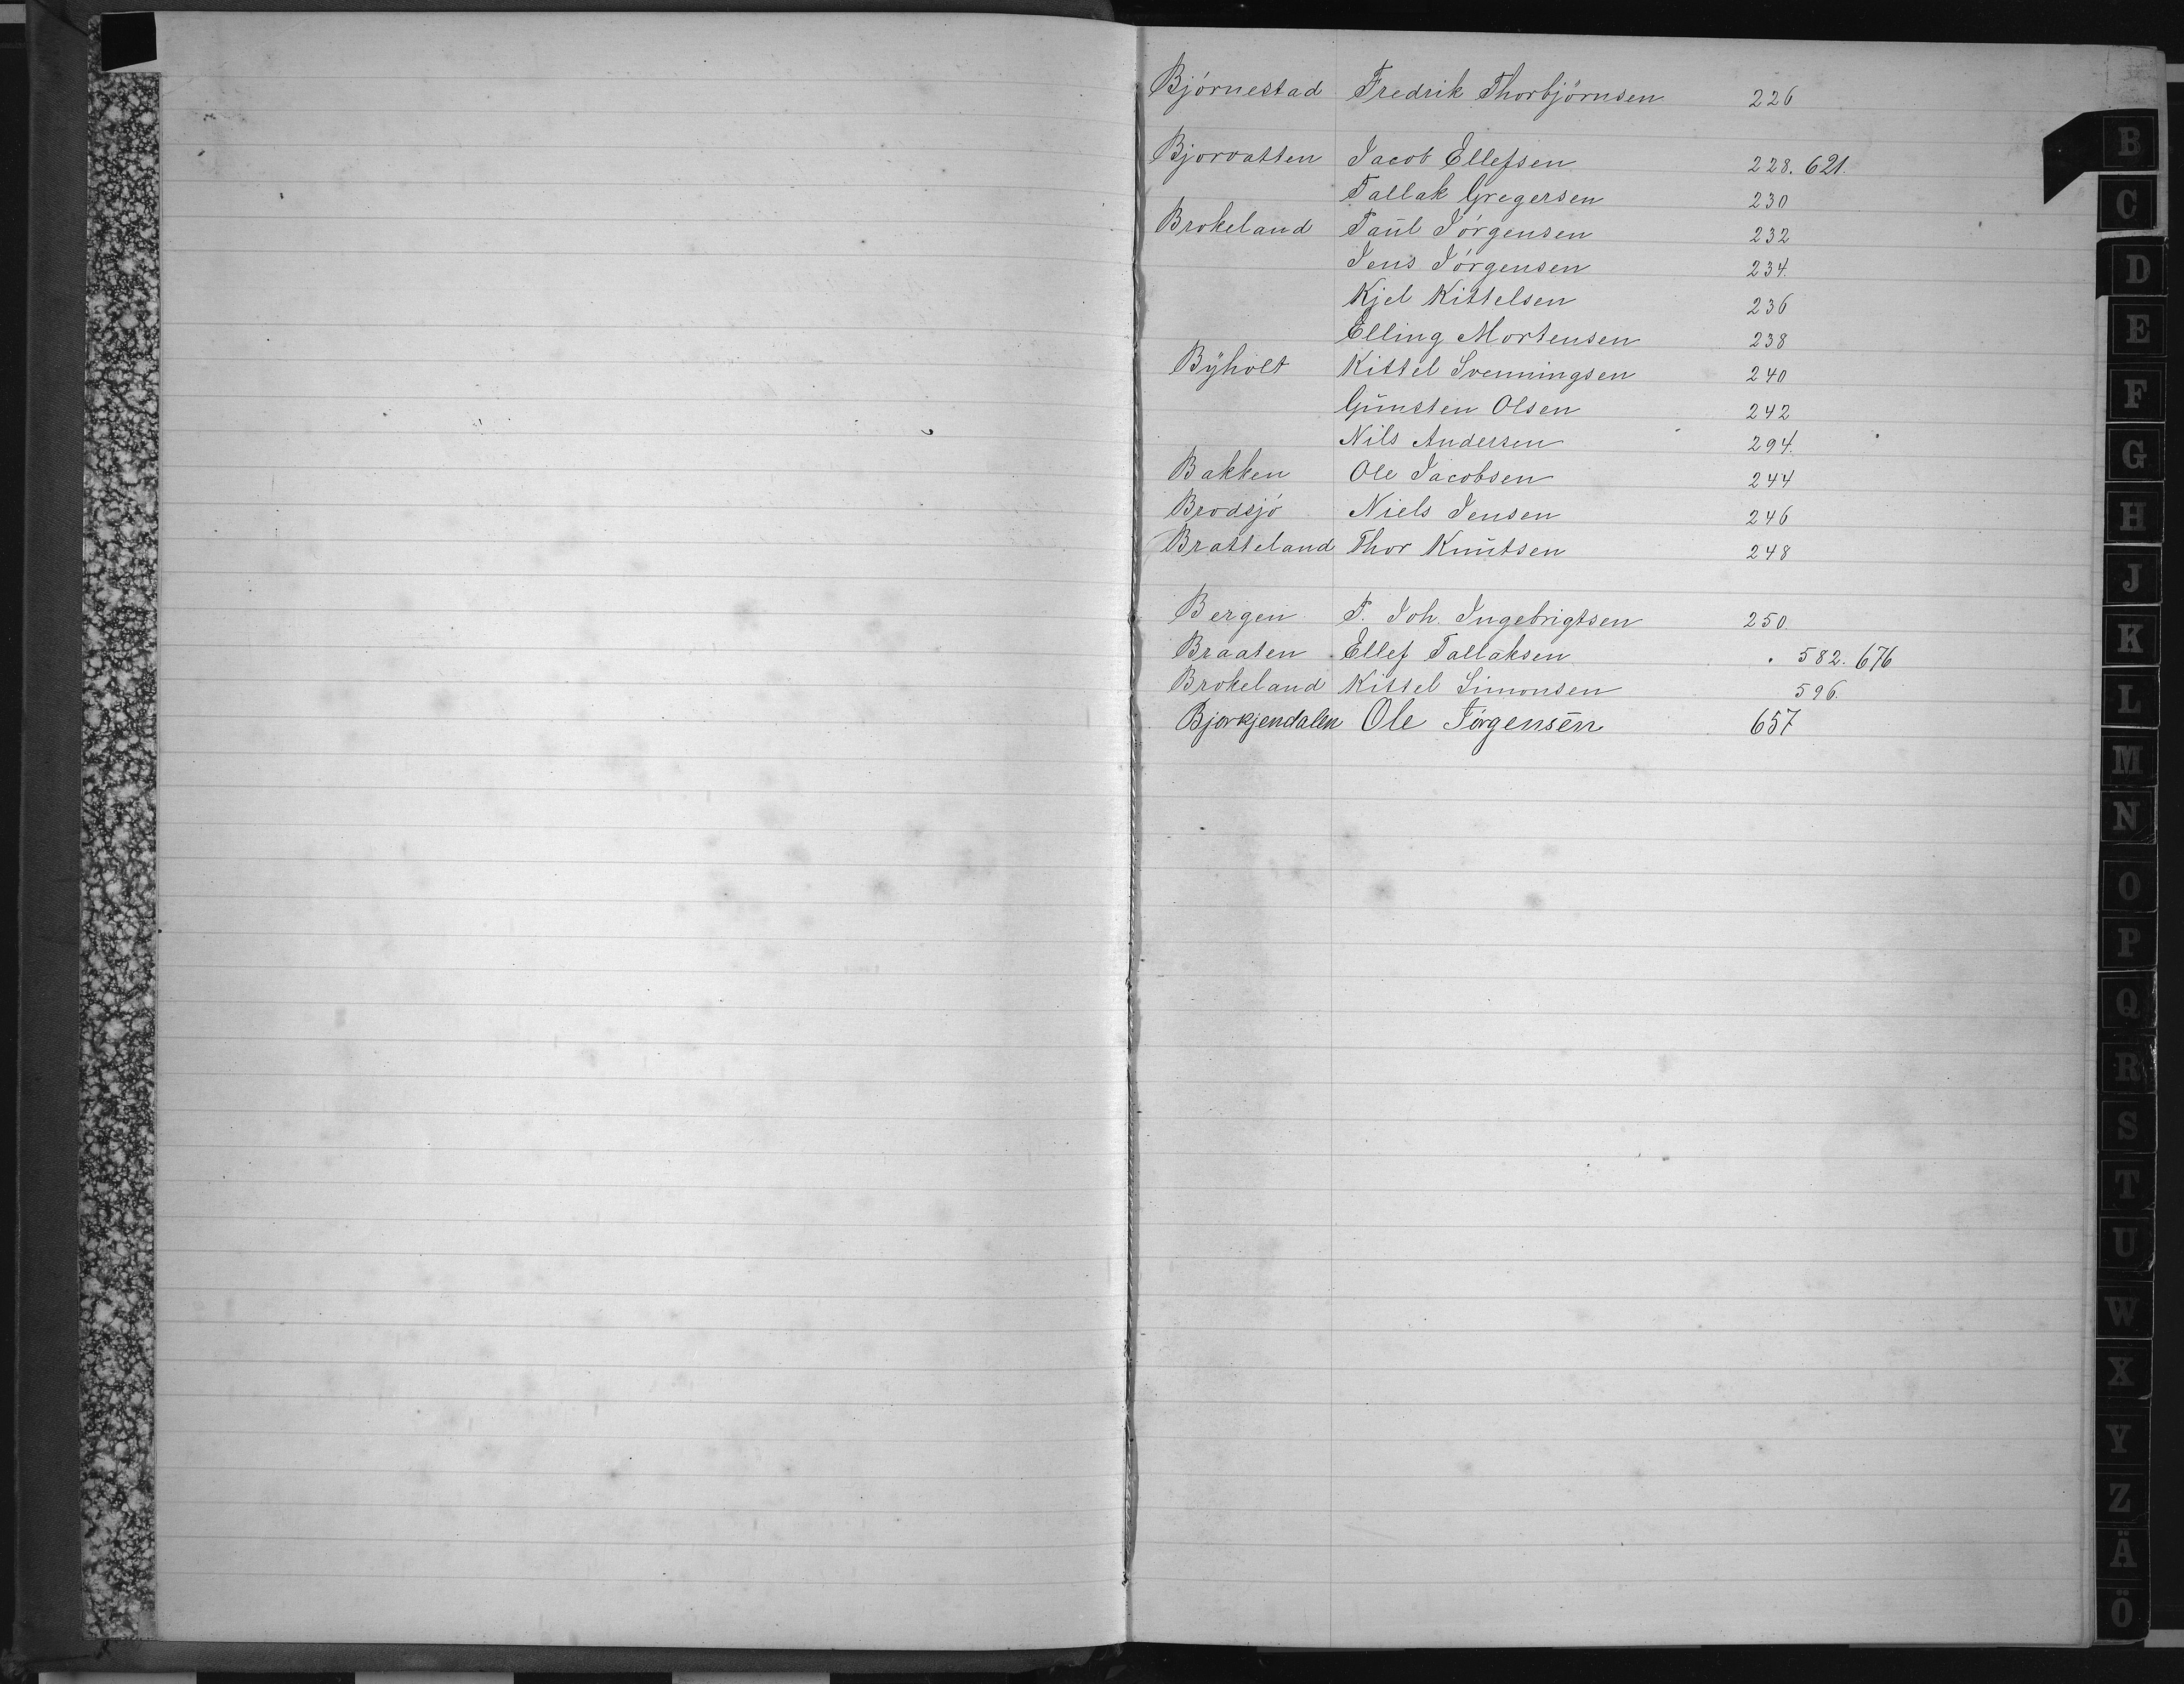 Bjørnestad Fredrik Thorbjørnsen 226
Bjorvatten Jacob Ellefsen 228. 621.
Tallak Gregersen 230
Brokeland Paul Jørgensen 232
Jens Jørgensen 234.
Kjel Kittelsen 236
Elling Mortensen 238
Byholt Kittel Svenningsen 240
Gunsten Olsen 242
Nils Andersen 294.
Bakken Ole Jacobsen 244
Brodsjø Niels Jensen 246
Bratteland Thor Knutsen 248
Bergen T. Joh. Ingebrigtsen 250.
Braaten Ellef Tallaksen 582. 676
Brokeland Kittel Simonsen 596.
Bjorkjendalen Ole Jørgensen 657
B
C
D
E
F
G
H
J
K
L
M
N
O
P
Q
R
S
T
U
W
X
Y
Z
Ä
Ö